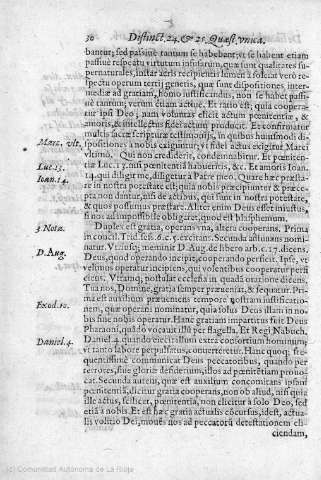 30 Distinct. 24. & 25. Quæst. vnica.
bantur, sed passiuè tantum se habebant; vt se habent etiam
passiuè respectu virtutum infusarum, quæ sunt qualitates su-
pernaturales, instar aëris recipientis lumen à sole: at verò re-
spectu operum tertij generis, quæ sunt dispositiones, inter-
mediæ ad gratiam, homo iustificandus, non se habet passi-
uè tantum; verum etiam actiuè. Et ratio est, quia coopera-
tur ipsi Deo; nam voluntas elicit actum pœnitentiæ, &
amoris, & intellectus fidei actum producit. Et confirmatur
multis sacræ scripturæ testimonijs, in quibus huiusmodi di-
spositiones à nobis exiguntur; vt fidei actus exigitur Marci
Marc. vlt.
vltimò. Qui non crediderit, condemnabitur. Et pœniten-
tiæ Luc. 13. nisi pœnitentiā habueritis, &c. Et amoris Ioan.
Luc. 13.
Ioan. 14.
14. qui diligit me, diligetur à Patre meo. Quare hæc præsta-
re in nostra potestate est; quia nobis præcipiuntur & præce-
pta non dantur, nisi de actibus, qui sunt in nostra potestate,
& quos possumus præstare. Aliter enim Deus esset iniustus,
si nos ad impossibile obligaret, quod est blasphemum.
3 Nota.
Duplex est gratia, operans vna, altera cooperans. Prima
in concil. Trid. sess. 6. c. 5. excitans. Secunda adiuuans nomi-
natur. Vtriusq; meminit D. Aug. de libero arb. c. 17. dicens,
D. Aug.
Deus, quod operando incipit, cooperando perficit. Ipse, vt
velimus operatur incipiens, qui volentibus cooperatur perfi
ciens. Vtramq; postulat ecclesia in quadā oratione dicens,
Tua nos, Domine, gratia semper præueniat, & sequatur. Pri-
ma est auxilium præueniens tempore nostram iustificatio-
nem, quæ operans nominatur, quia solus Deus illam in no-
bis sine nobis operatur. Hanc gratiam impartitus fuit Deus
Exod. 10.
Pharaoni, quādo vocauit illū per flagella. Et Regi Nabuch.
Daniel. 4.
Daniel. 4. quando eiecit illum extra consortium hominum,
vt tanto labore perpulsatus, conuerteretur. Hanc quoq; fre-
quentissimè communicat Deus peccatoribus, quando per
terrores, siue gloriæ desiderium, illos ad pœnitētiam prouo-
cat. Secunda autem, quæ est auxilium concomitans ipsum
pœnitentē, dicitur gratia cooperans, non ob aliud, nisi quia
ille actus, scilicet, pœnitentia, non elicitur à solo Deo, sed
etiā à nobis. Et est hæc gratia actualis cōcursus, idest, actua-
lis volitio Dei, mouēs nos ad peccatorū detestationem eli-
ciendam,
(c) Comunidad Autónoma de La Rioja